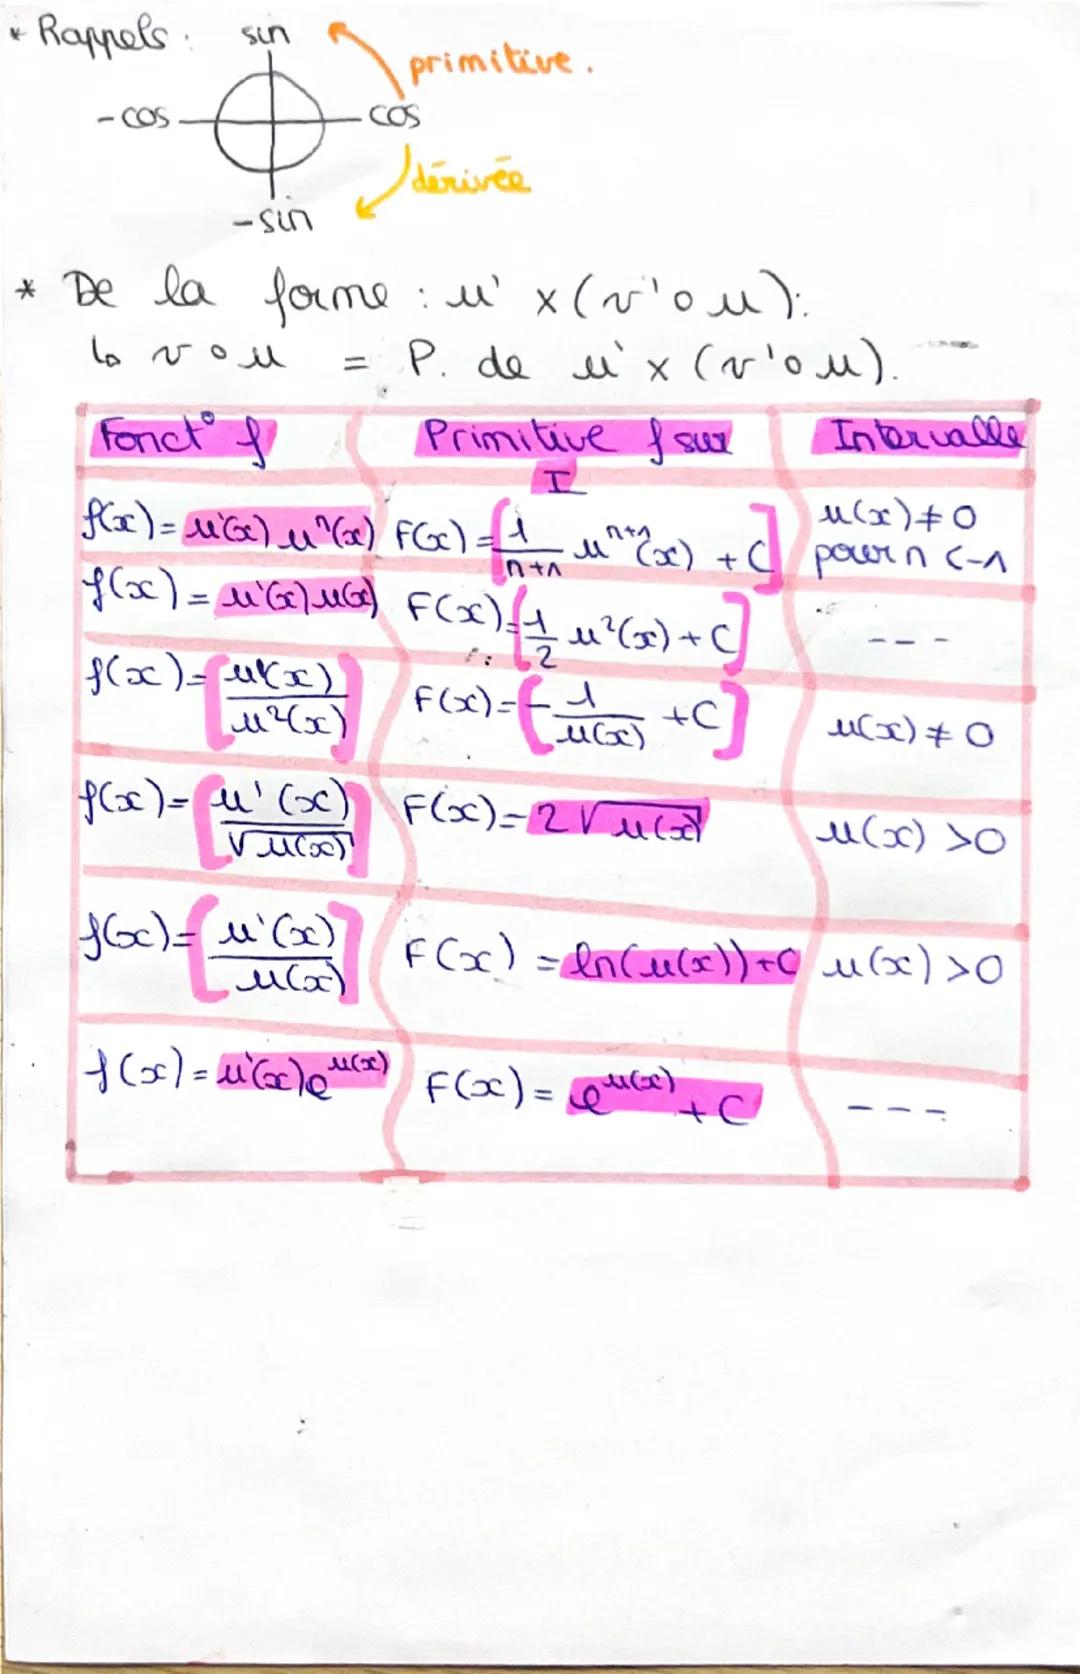 * Rappels :
sin
primitive.
- cos
cos
dérivée
- sin
* De la forme : u' x (v'o u):
↳ v o u = P. de u' x (v'o u).
Fonct° f Primitive f sur I Intervalle
f(x) = u'(x) u^n(x) F(x) = [1/(n+1) u^(n+1)(x) + C] u(x) ≠ 0 pour n < -1
f(x) = u'(x) u(x) F(x) = [1/2 u²(x) + C] ---
f(x) = [u'(x)/u²(x)] F(x) = [-1/u(x) + C] u(x) ≠ 0
f(x) = [u'(x)/√u(x)] F(x) = 2√u(x) u(x) > 0
f(x) = [u'(x)/u(x)] F(x) = ln(u(x)) + C u(x) > 0
f(x) = u'(x)e^u(x) F(x) = e^u(x) + C ---